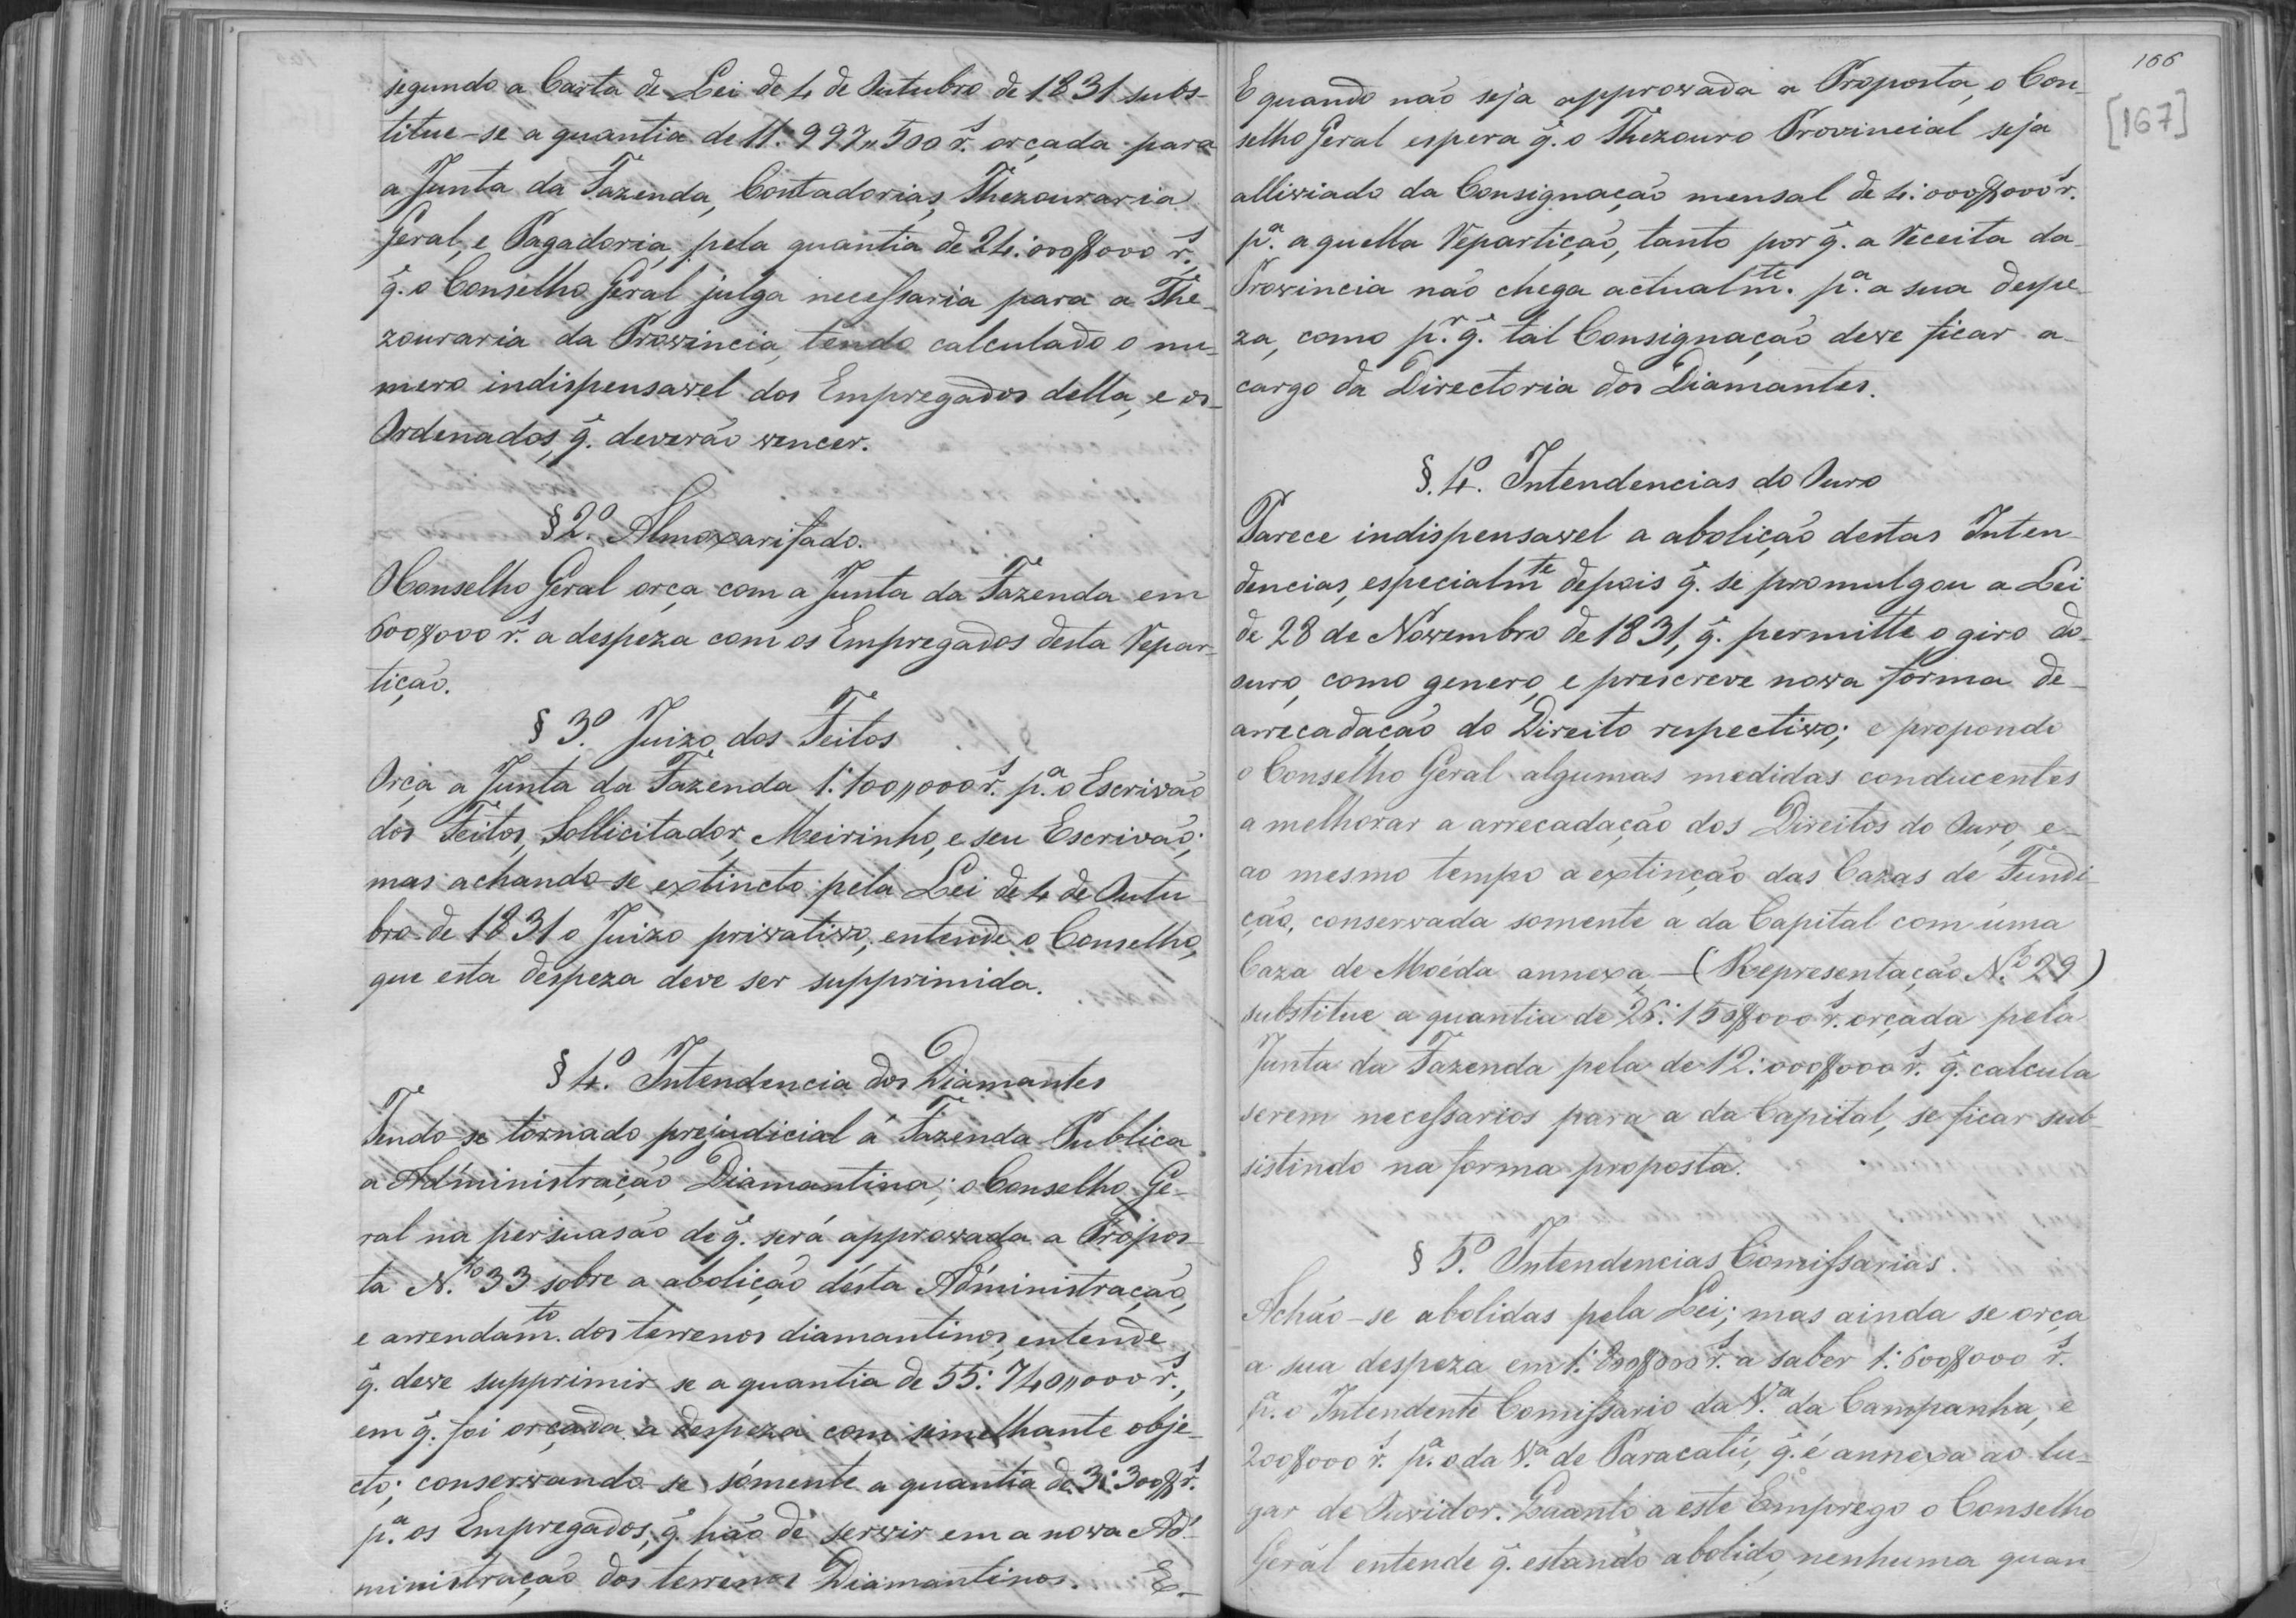 segundo a Carta de Lei de 4 de Outubro de 1831 subs-
titue-se a quantia de 11:997,,500 rs. orçada para
a Junta da Fazenda, Contadorias, Thezouraria
Geral, e Pagadoria, pela quantia de 24:000$000 rs.,
q̃. o Conselho Geral julga necessaria para a The-
zouraria da Provincia, tendo calculado o nu-
mero indispensavel dos Empregados della, e os-
Ordenados, q̃. deverão vencer.
§ 2º. Almoxarifado.
O Conselho Geral orça com a Junta da Fazenda em
600$000 rs. a despeza com os Empregados desta Repar-
tição.
§ 3º. Juizo dos Feitos
Orça a Junta da Fazenda 1:100,,000 rs. pª. o Escrivão
dos Feitos, Sollicitador, Meirinho, e seu Escrivão;
mas achando-se extincto pela Lei de 4 de Outu-
bro de 1831 o Juizo privativo, entende o Conselho,
que esta despeza deve ser supprimida.
§ 4º. Intendencia dos Diamantes
Tendo-se tornado prejudicial á Fazenda Publica
a Administração Diamantina; o Conselho Ge-
ral na persuasão de q̃. será approvada a Propos-
ta N.º 33 sobre a abolição désta Administração,
e arrendamto. dos terrenos diamantinos, entende
q̃. deve supprimir-se a quantia de 55:740,,000 rs.,
em q̃. foi orçada a despeza com similhante obje-
cto; conservando-se sómente a quantia de 3:300$ rs.
pª. os Empregados, q̃. hão de servir em a nova Ad-
ministração dos terrenos Diamantinos. E-
166
[167]
E quando não seja approvada a Proposta, o Con-
selho Geral espera q̃. o Thezouro Provincial seja
alliviado da Consignação mensal de 4:000$000 rs.
pª. aquella Repartição, tanto por q̃. a Receita da-
Provincia não chega actualmte. pª. a sua despe-
za, como pr. q̃. tal Consignação deve ficar a-
cargo da Directoria dos Diamantes.
§. 4º. Intendencias do Ouro
Parece indispensavel a abolição destas Inten-
dencias, especialmte depois q̃. se promulgou a Lei
de 28 de Novembro de 1831, q̃. permitte o giro do-
ouro, como genero, e prescreve nova forma de-
arrecadação do Direito respectivo; e propondo
o Conselho Geral algumas medidas conducentes
a melhorar a arrecadação dos Direitos do Ouro, e-
ao mesmo tempo a extincção das Cazas de Fundi-
ção, conservada somente a da Capital com uma
Caza de Moéda annexa - (Representação N.º 29)
substitue a quantia de 26:150$000 rs. orçada pela
Junta da Fazenda pela de 12:000$000 rs. q̃. calcula
serem necessarios para a da Capital, se ficar sub-
sistindo na forma proposta.
§ 5º. Intendencias Comissarias.
Achão-se abolidas pela Lei; mas ainda se orça
a sua despeza em 1:800$000 rs. a saber 1:600$000 rs.
pª. o Intendente Comissario da Vª. da Campanha, e
200$000 rs. pª. o da Vª. de Paracatú, q̃. é annexa ao lu-
gar de Ouvidor. Quanto a este Emprego o Conselho
Geral entende q̃. estando abolido, nenhuma quan-